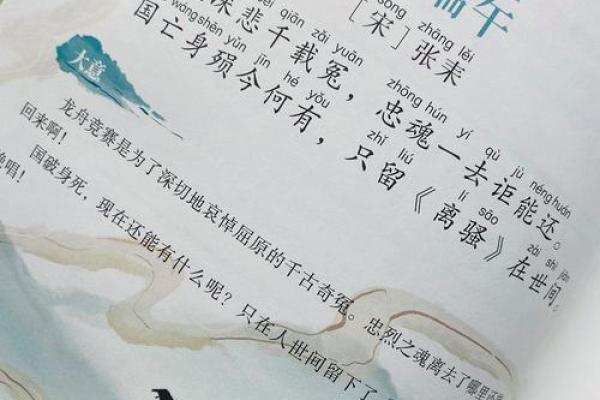 端午
sòng zhāng lěi
［宋］张耒
ēi qiān zǎi yuān zhōng hún yí qù jù néng huán
深悲千载冤，忠魂一去讵能还。
wáng shēn yǔn jīn hé yǒu zhǐ liú lí sāo zài shì jiān
国亡身殒今何有，只留《离骚》在世间。
大意
龙舟竞赛是为了深切地哀悼屈原的千古奇冤。忠烈之魂离去了哪里还
回来啊！
国破身死，现在还能有什么呢？只在人世间留下了
唱！